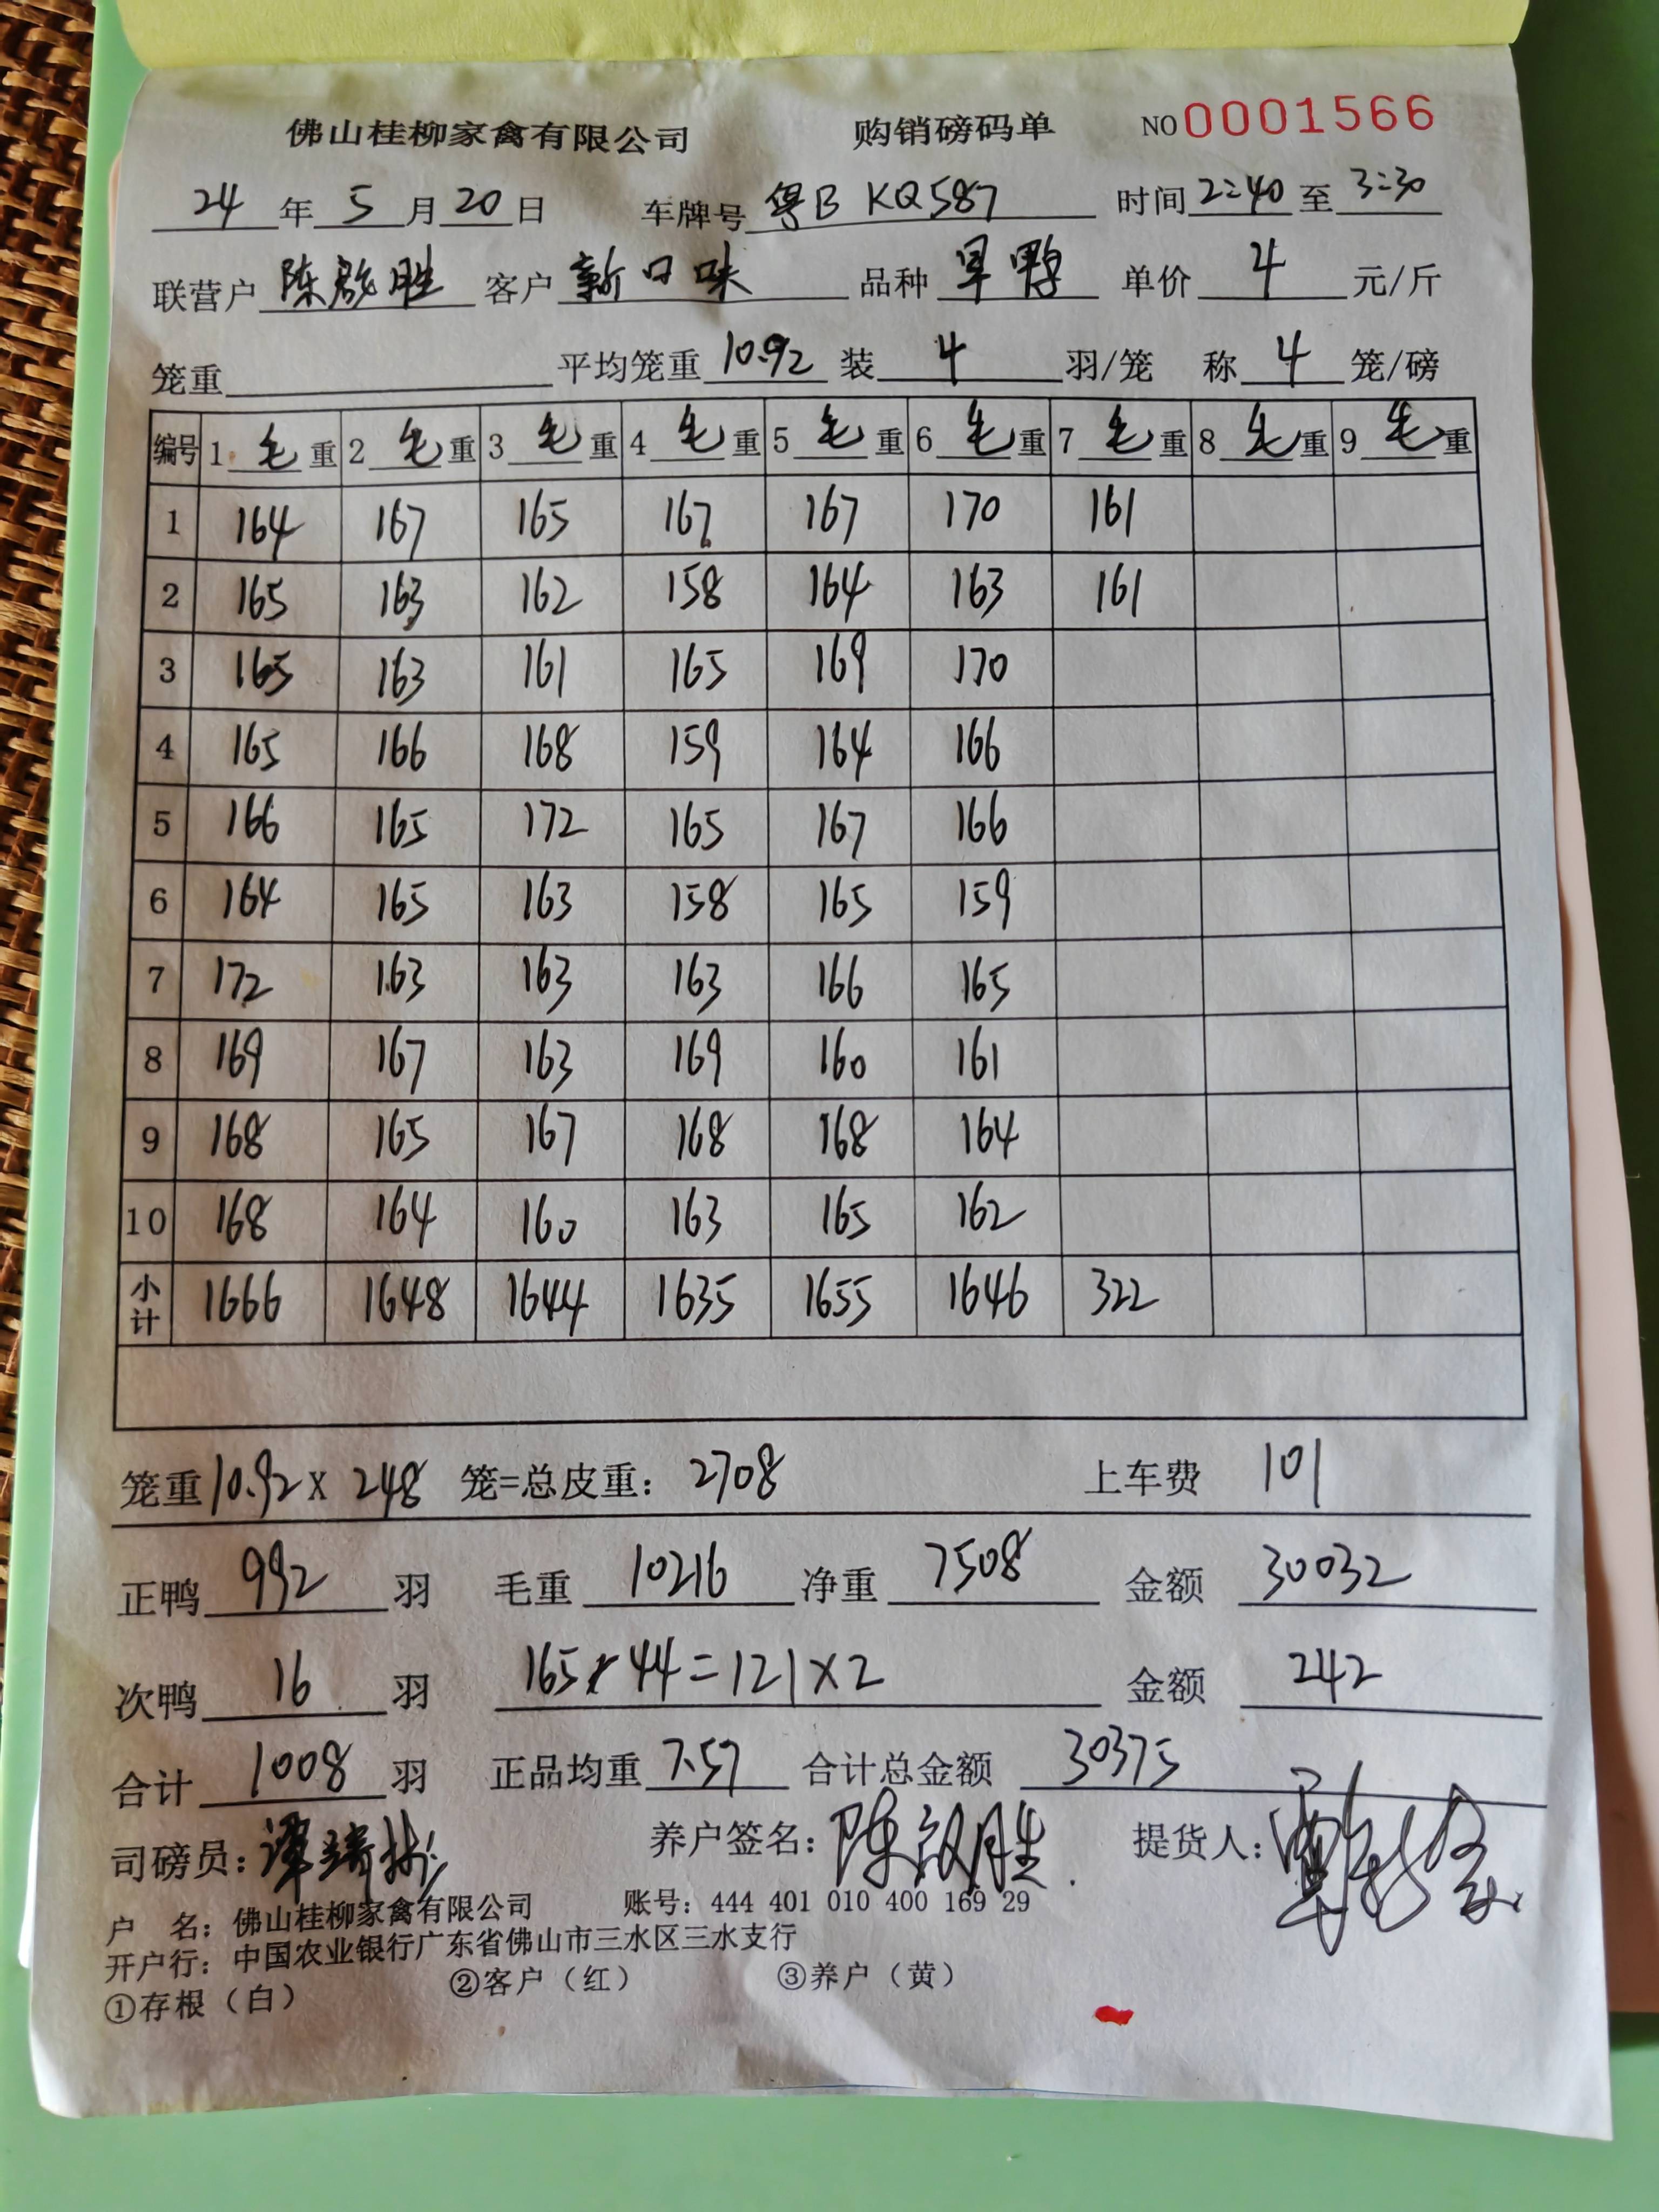 佛山桂柳家禽有限公司 购销磅码单 NO 0001566
24 年 5 月 20 日 车牌号 粤B KQ587 时间 2:40 至 3:30
联营户 陈啟胜 客户 新口味 品种 旱鸭 单价 4 元/斤
笼重 平均笼重 10.92 装 4 羽/笼 称 4 笼/磅
编号 1 毛 重 2 毛 重 3 毛 重 4 毛 重 5 毛 重 6 毛 重 7 毛 重 8 毛 重 9 毛 重
1 164 167 165 167 167 170 161
2 165 163 162 158 164 163 161
3 165 163 161 165 169 170
4 165 166 168 159 164 166
5 166 165 172 165 167 166
6 164 165 163 158 165 159
7 172 163 163 163 166 165
8 169 167 163 169 160 161
9 168 165 167 168 168 164
10 168 164 160 163 165 162
小计 1666 1648 1644 1635 1655 1646 322
笼重 10.92 X 248 笼=总皮重: 2708 上车费 101
正鸭 992 羽 毛重 10216 净重 7508 金额 30032
次鸭 16 羽 165 - 44 = 121 × 2 金额 242
合计 1008 羽 正品均重 7.57 合计总金额 30375
司磅员: 养户签名: 陈啟胜 提货人:
户 名: 佛山桂柳家禽有限公司 账号: 444 401 010 400 169 29
开户行: 中国农业银行广东省佛山市三水区三水支行
①存根（白） ②客户（红） ③养户（黄）